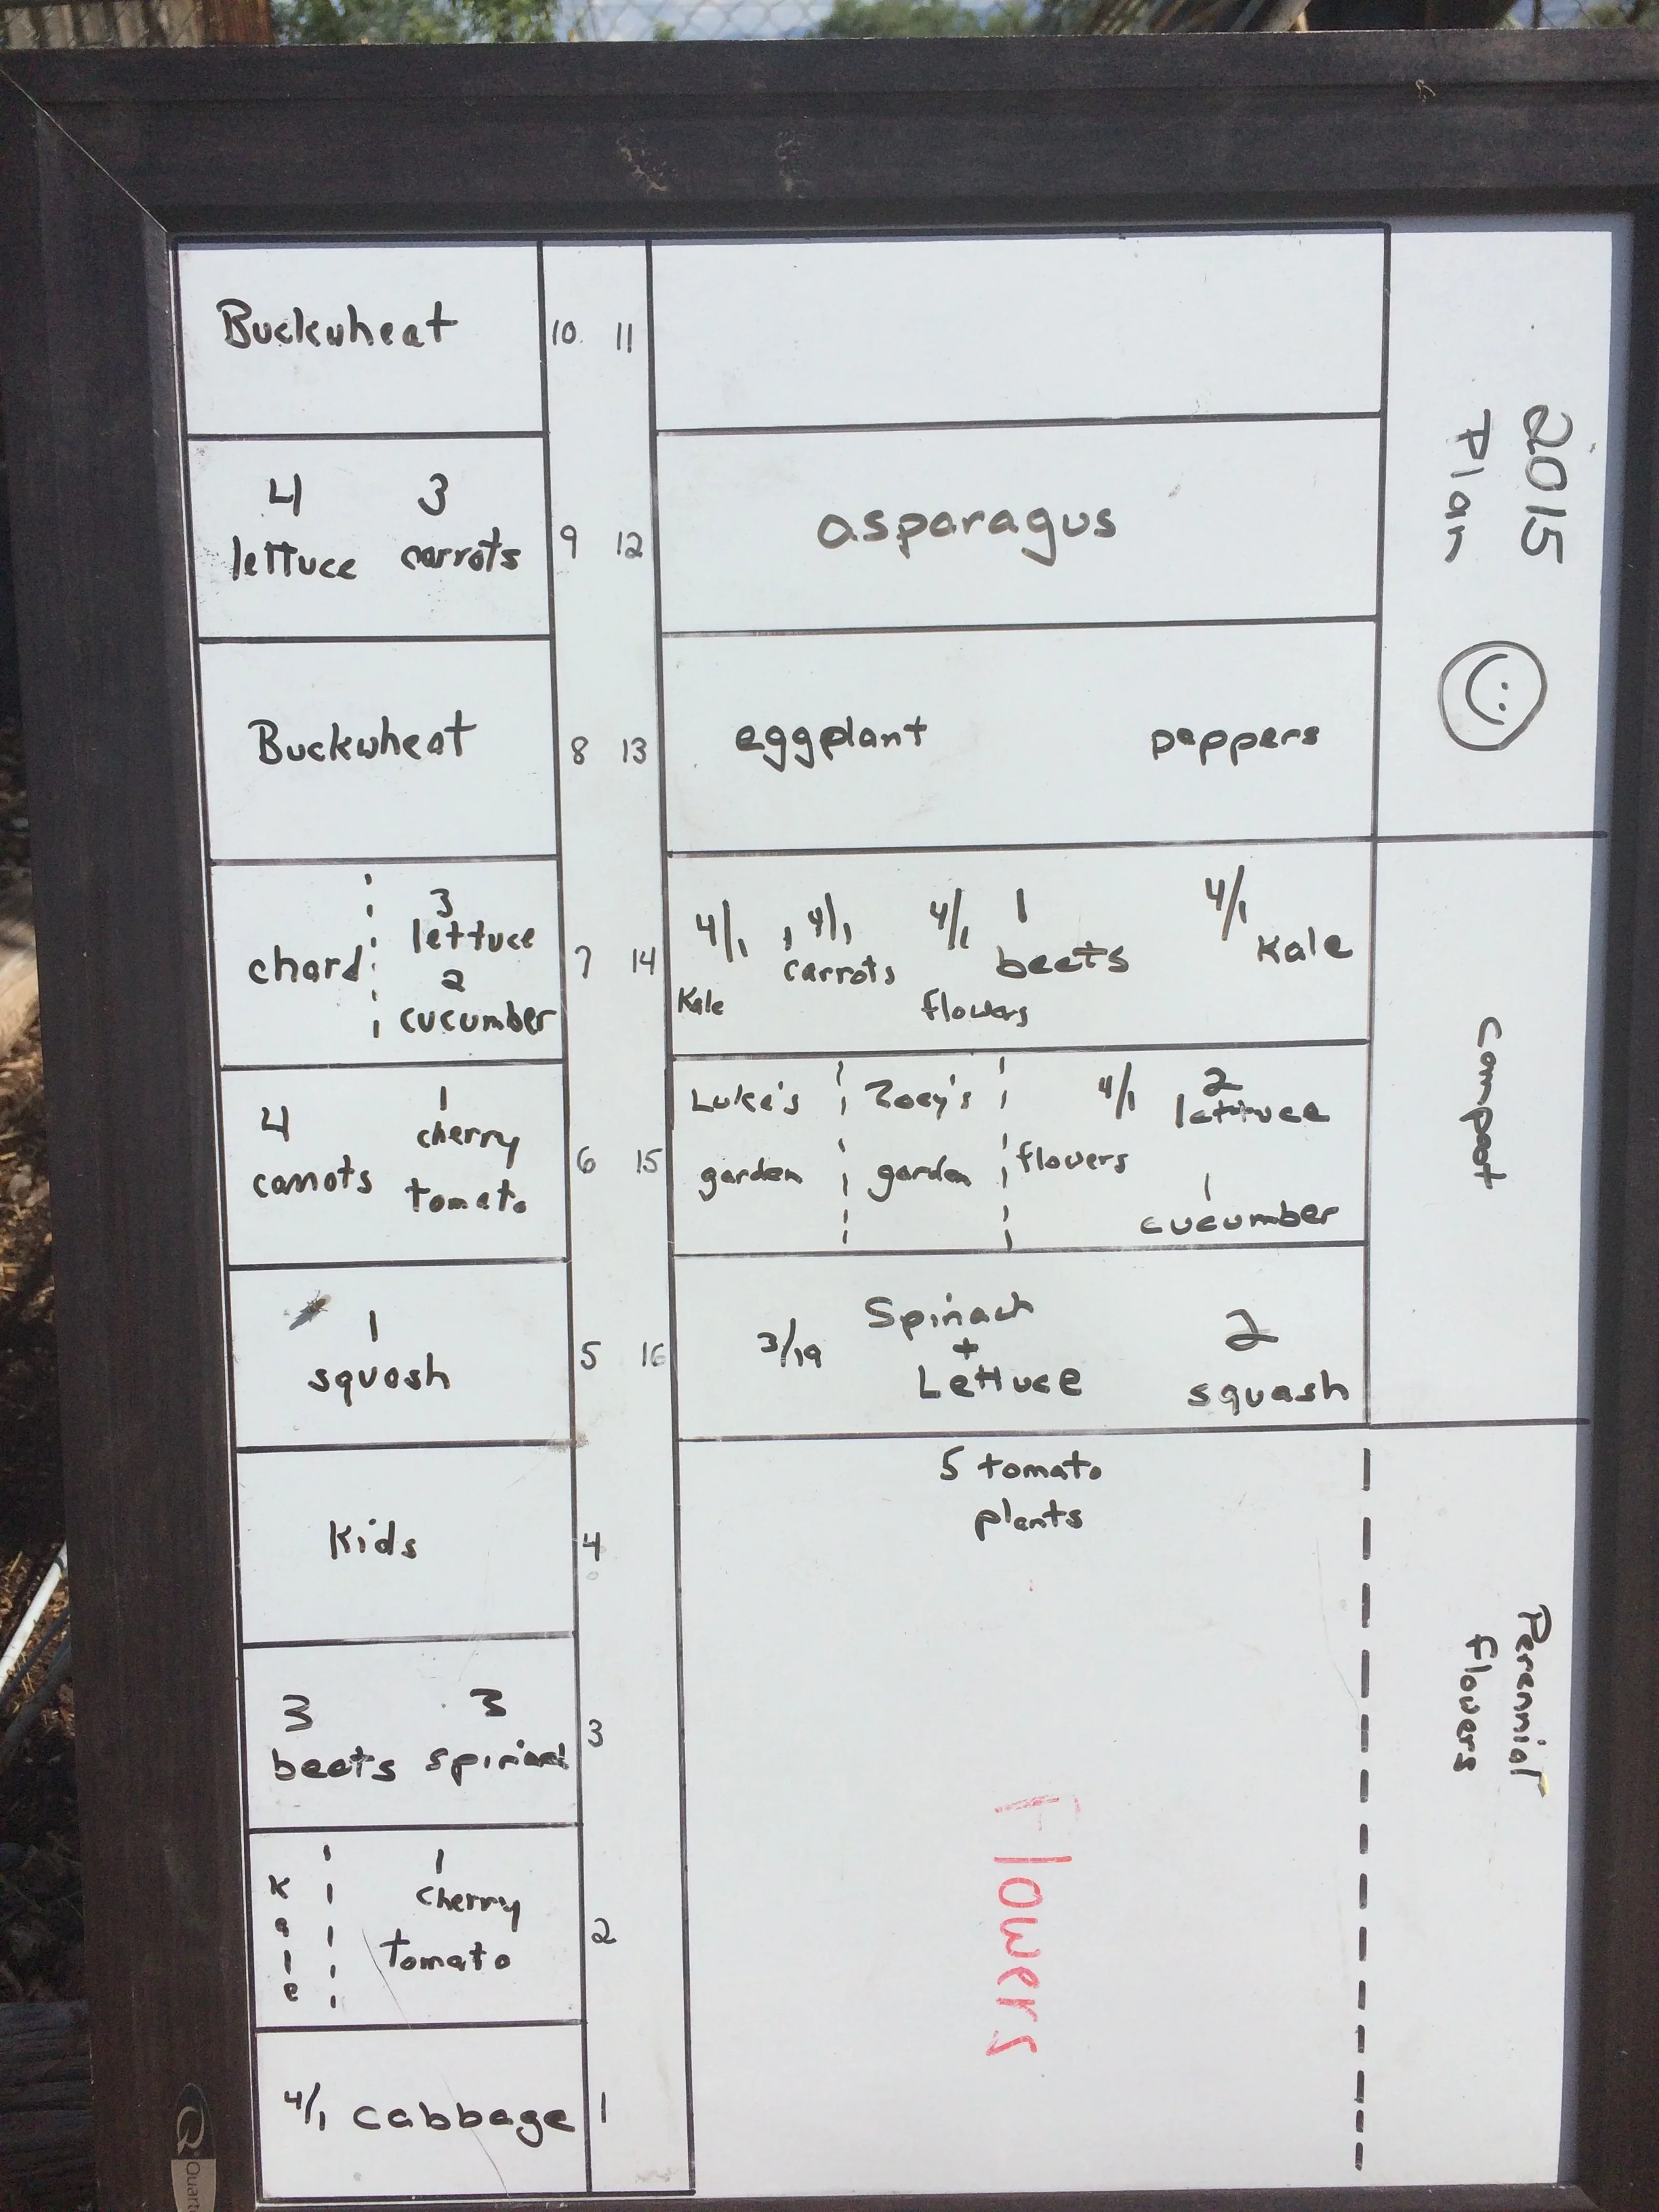 2015
Plan
Buckwheat
10 11
4 3
lettuce carrots
9 12
asparagus
Buckwheat
8 13
eggplant peppers
chard
3
lettuce
2
cucumber
7 14
4/1 4/1 4/1 1 4/1
Kale carrots flowers beets Kale
4 1
carrots cherry
tomato
6 15
Luke's
garden
Zoey's
garden
flowers
4/1 2
lettuce
1
cucumber
Compost
1
squash
5 16
3/19
Spinach
+
Lettuce
2
squash
Kids
4
5 tomato
plants
3 3
beets spinach
3
Kale
1
cherry
tomato
2
4/1 cabbage
1
Flowers
Perennial
flowers
Q
Quart